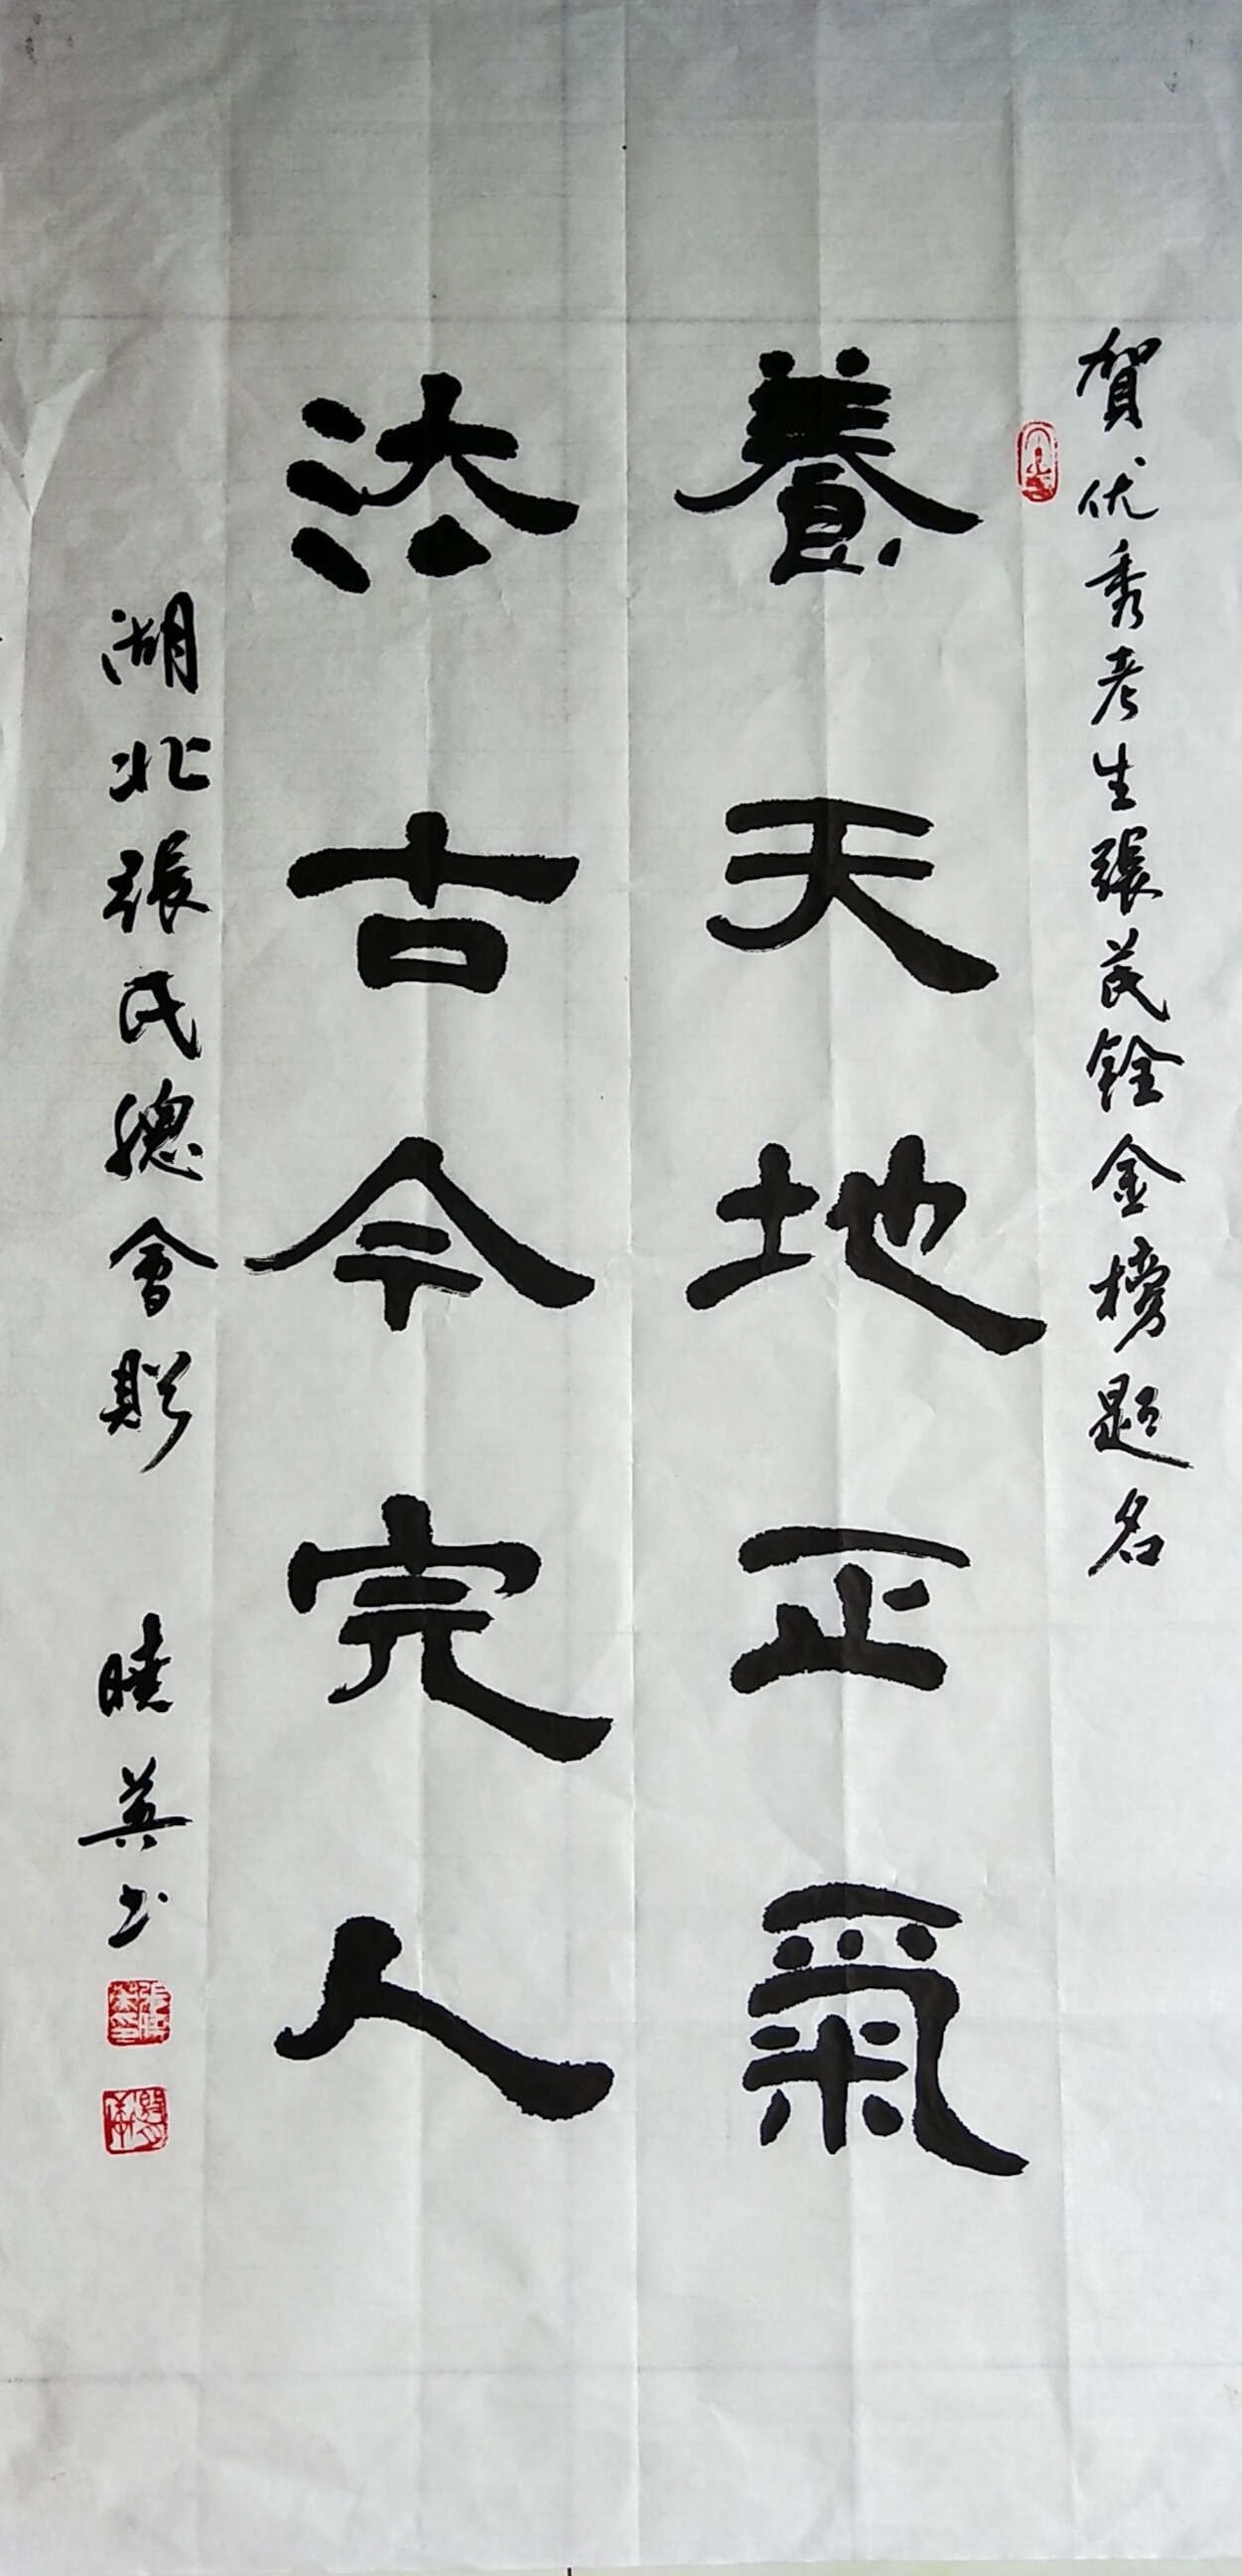 賀优秀考生張芪銓金榜題名
養天地正氣
法古今完人
湖北張氏總會贈
曉英书